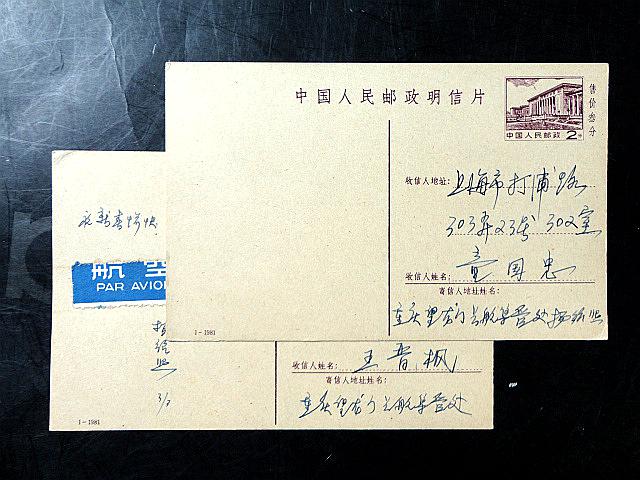 中国人民邮政明信片
售价叁分
中国人民邮政 2分
收信人地址:
上海市打浦路
303弄23号 302室
收信人姓名:
童国忠
寄信人地址姓名:
重庆望龙门长航某营处杨给照
1-1981
祝新春愉快
航空
PAR AVION
3/2
收信人姓名: 王晋枫
寄信人地址姓名:
重庆望龙门长航某营处
1-1981